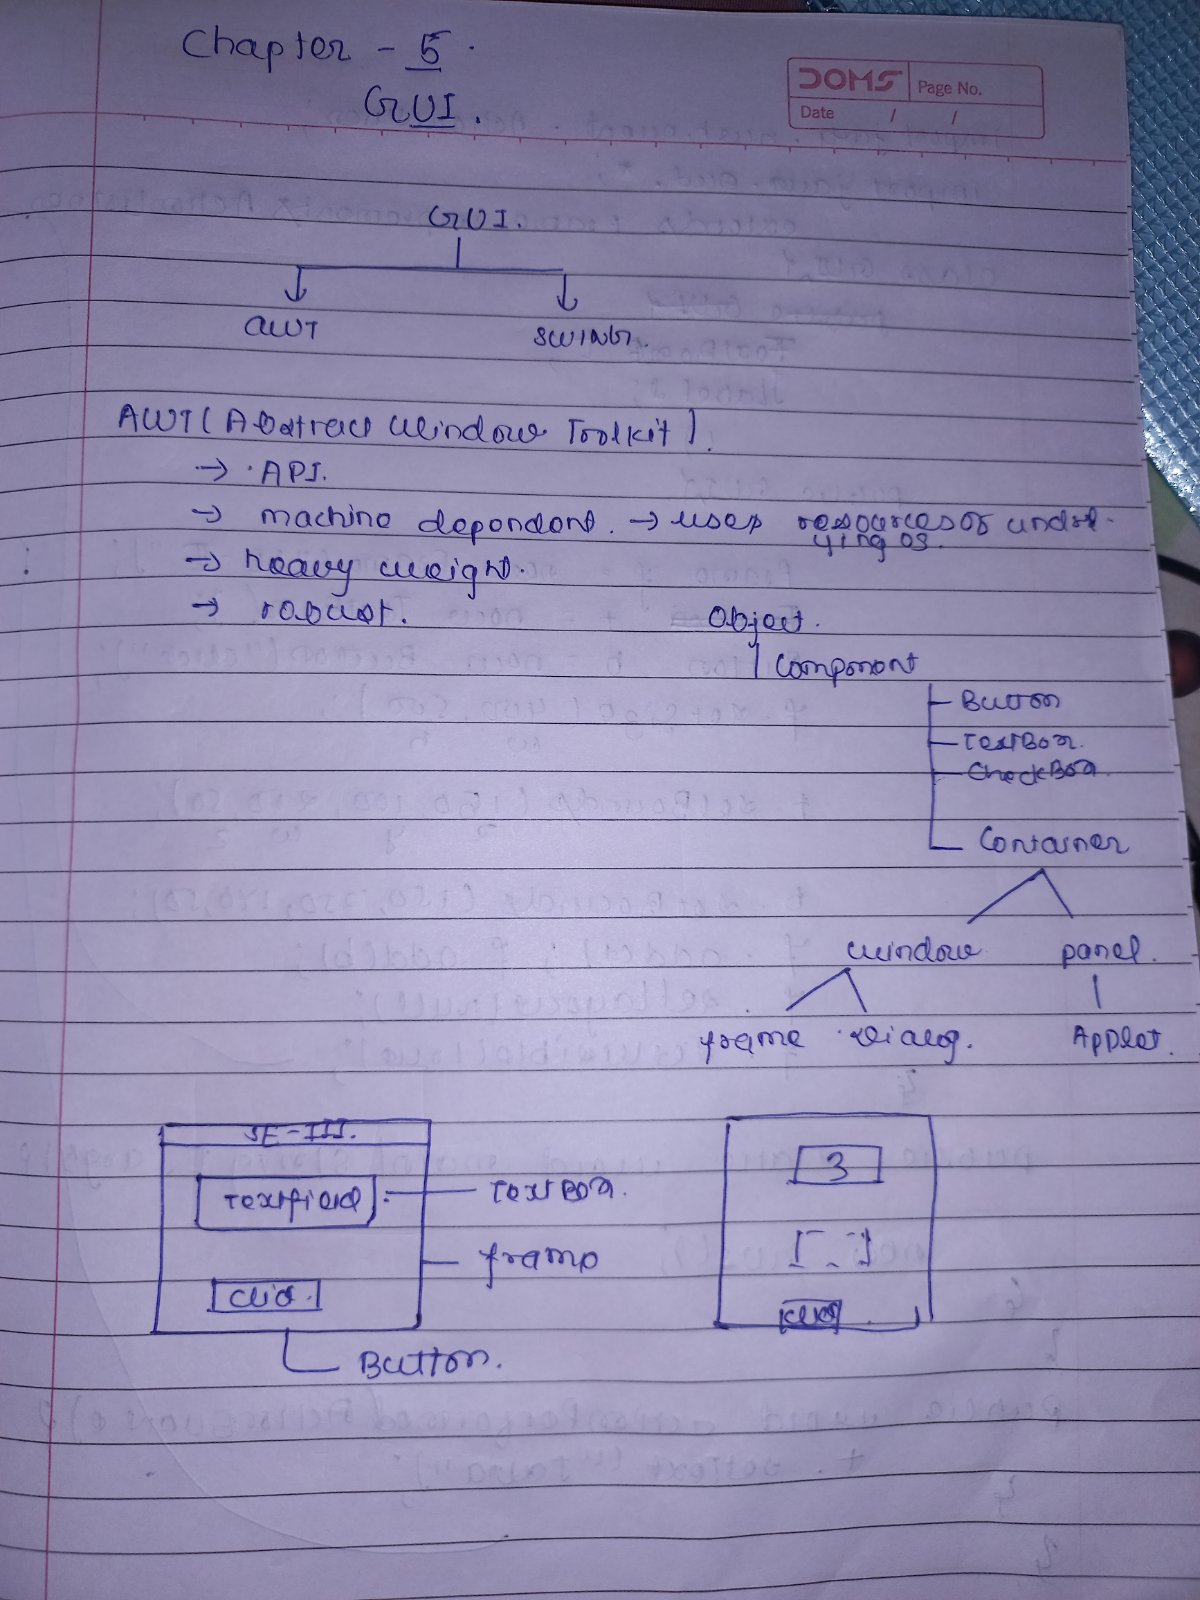 Chapter - 5.
GUI.
DOMS Page No.
Date / /
GUI.
AWT SWING.
AWT (Abstract Window Toolkit).
→ API.
→ machine dependent. → uses resources of underl-
ying os.
→ heavy weight.
→ robust.
Object.
Component
Button
TextBox.
CheckBox.
Container
window panel.
frame Dialog. Applet.
SE-III.
Textfield TextBox.
frame
Click.
Button.
3
Click